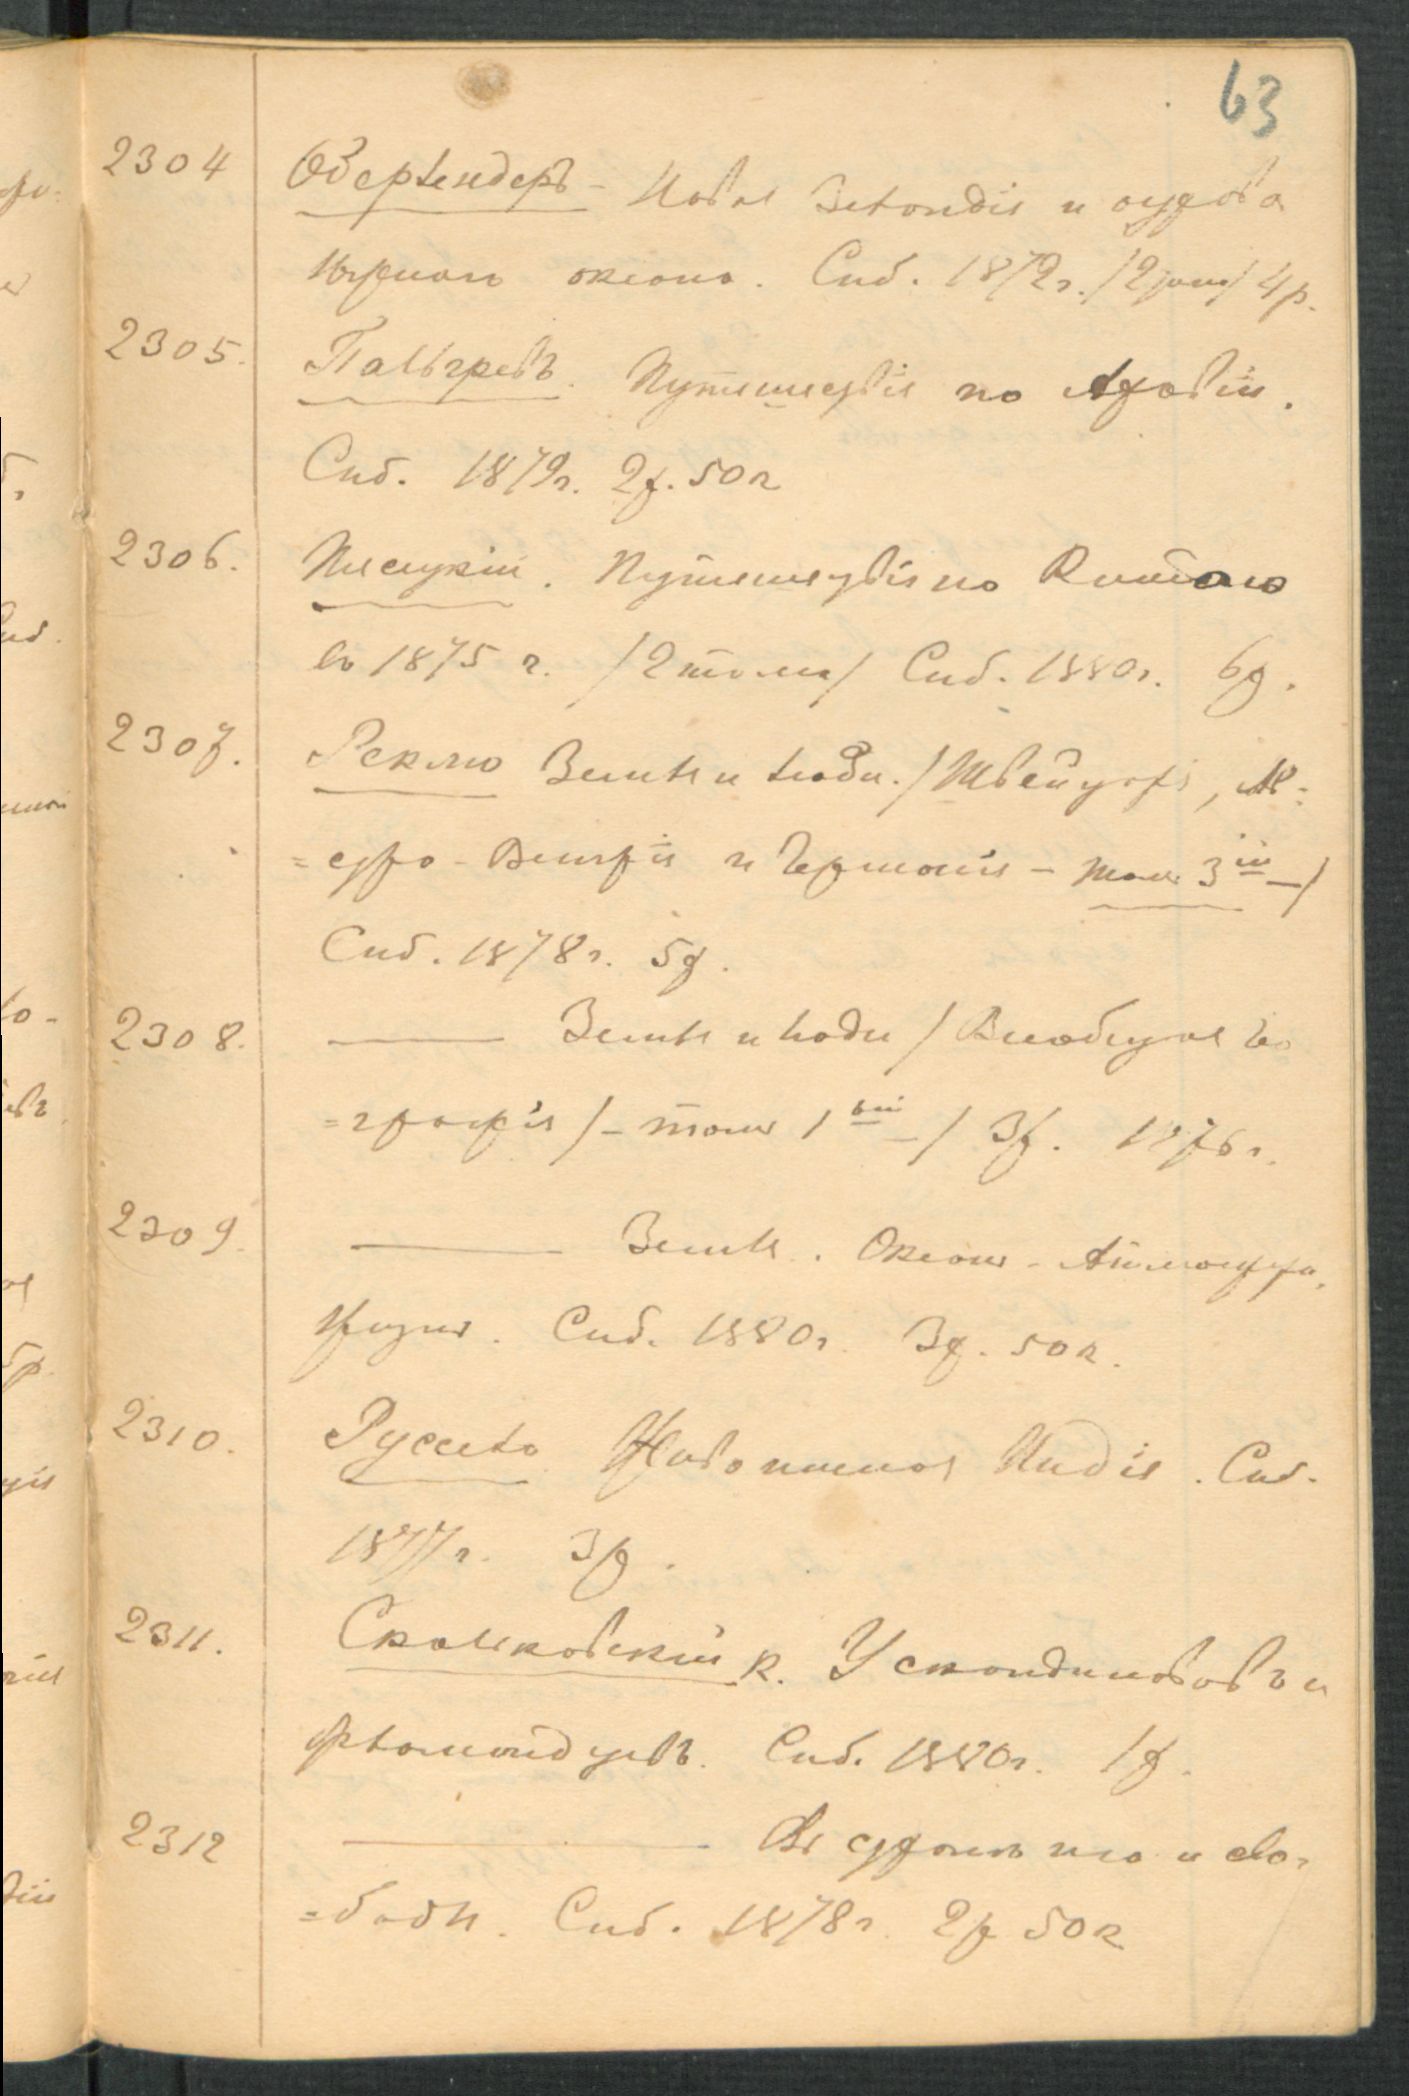 63
2304 Оберлендеръ - Новая Зеландія и острова
Южнаго океана. Спб. 1872г. /2 тома/ 4р.
2305. Пальгревъ. Путешествія по Аравіи.
Спб. 1879г. 2р. 50к
2306. Пясецкій. Путешествія по Китаю
въ 1875 г. /2 тома/ Спб. 1880г. 6р.
2307. Реклю Земля и люди. /Швейцарія, Ав=
=стро-Венгрія и Германія - томъ 3ій -/
Спб. 1878г. 5р.
2308. —— Земля и люди /Всеобщая Гео
=графія/ - томъ 1ый -/ 3р. 1876г.
2309. —— Земля. Океанъ - Атмосфера.
Жизнь. Спб. 1880г. 3р. 50к.
2310. Русселэ Живописная Индія. Спб.
1877г. 3р.
2311. Скальковскій К. У скандинавовъ и
фламандцевъ. Спб. 1880г. 1р.
2312 —— Въ странѣ ига и сво=
=боды. Спб. 1878г. 2р 50к